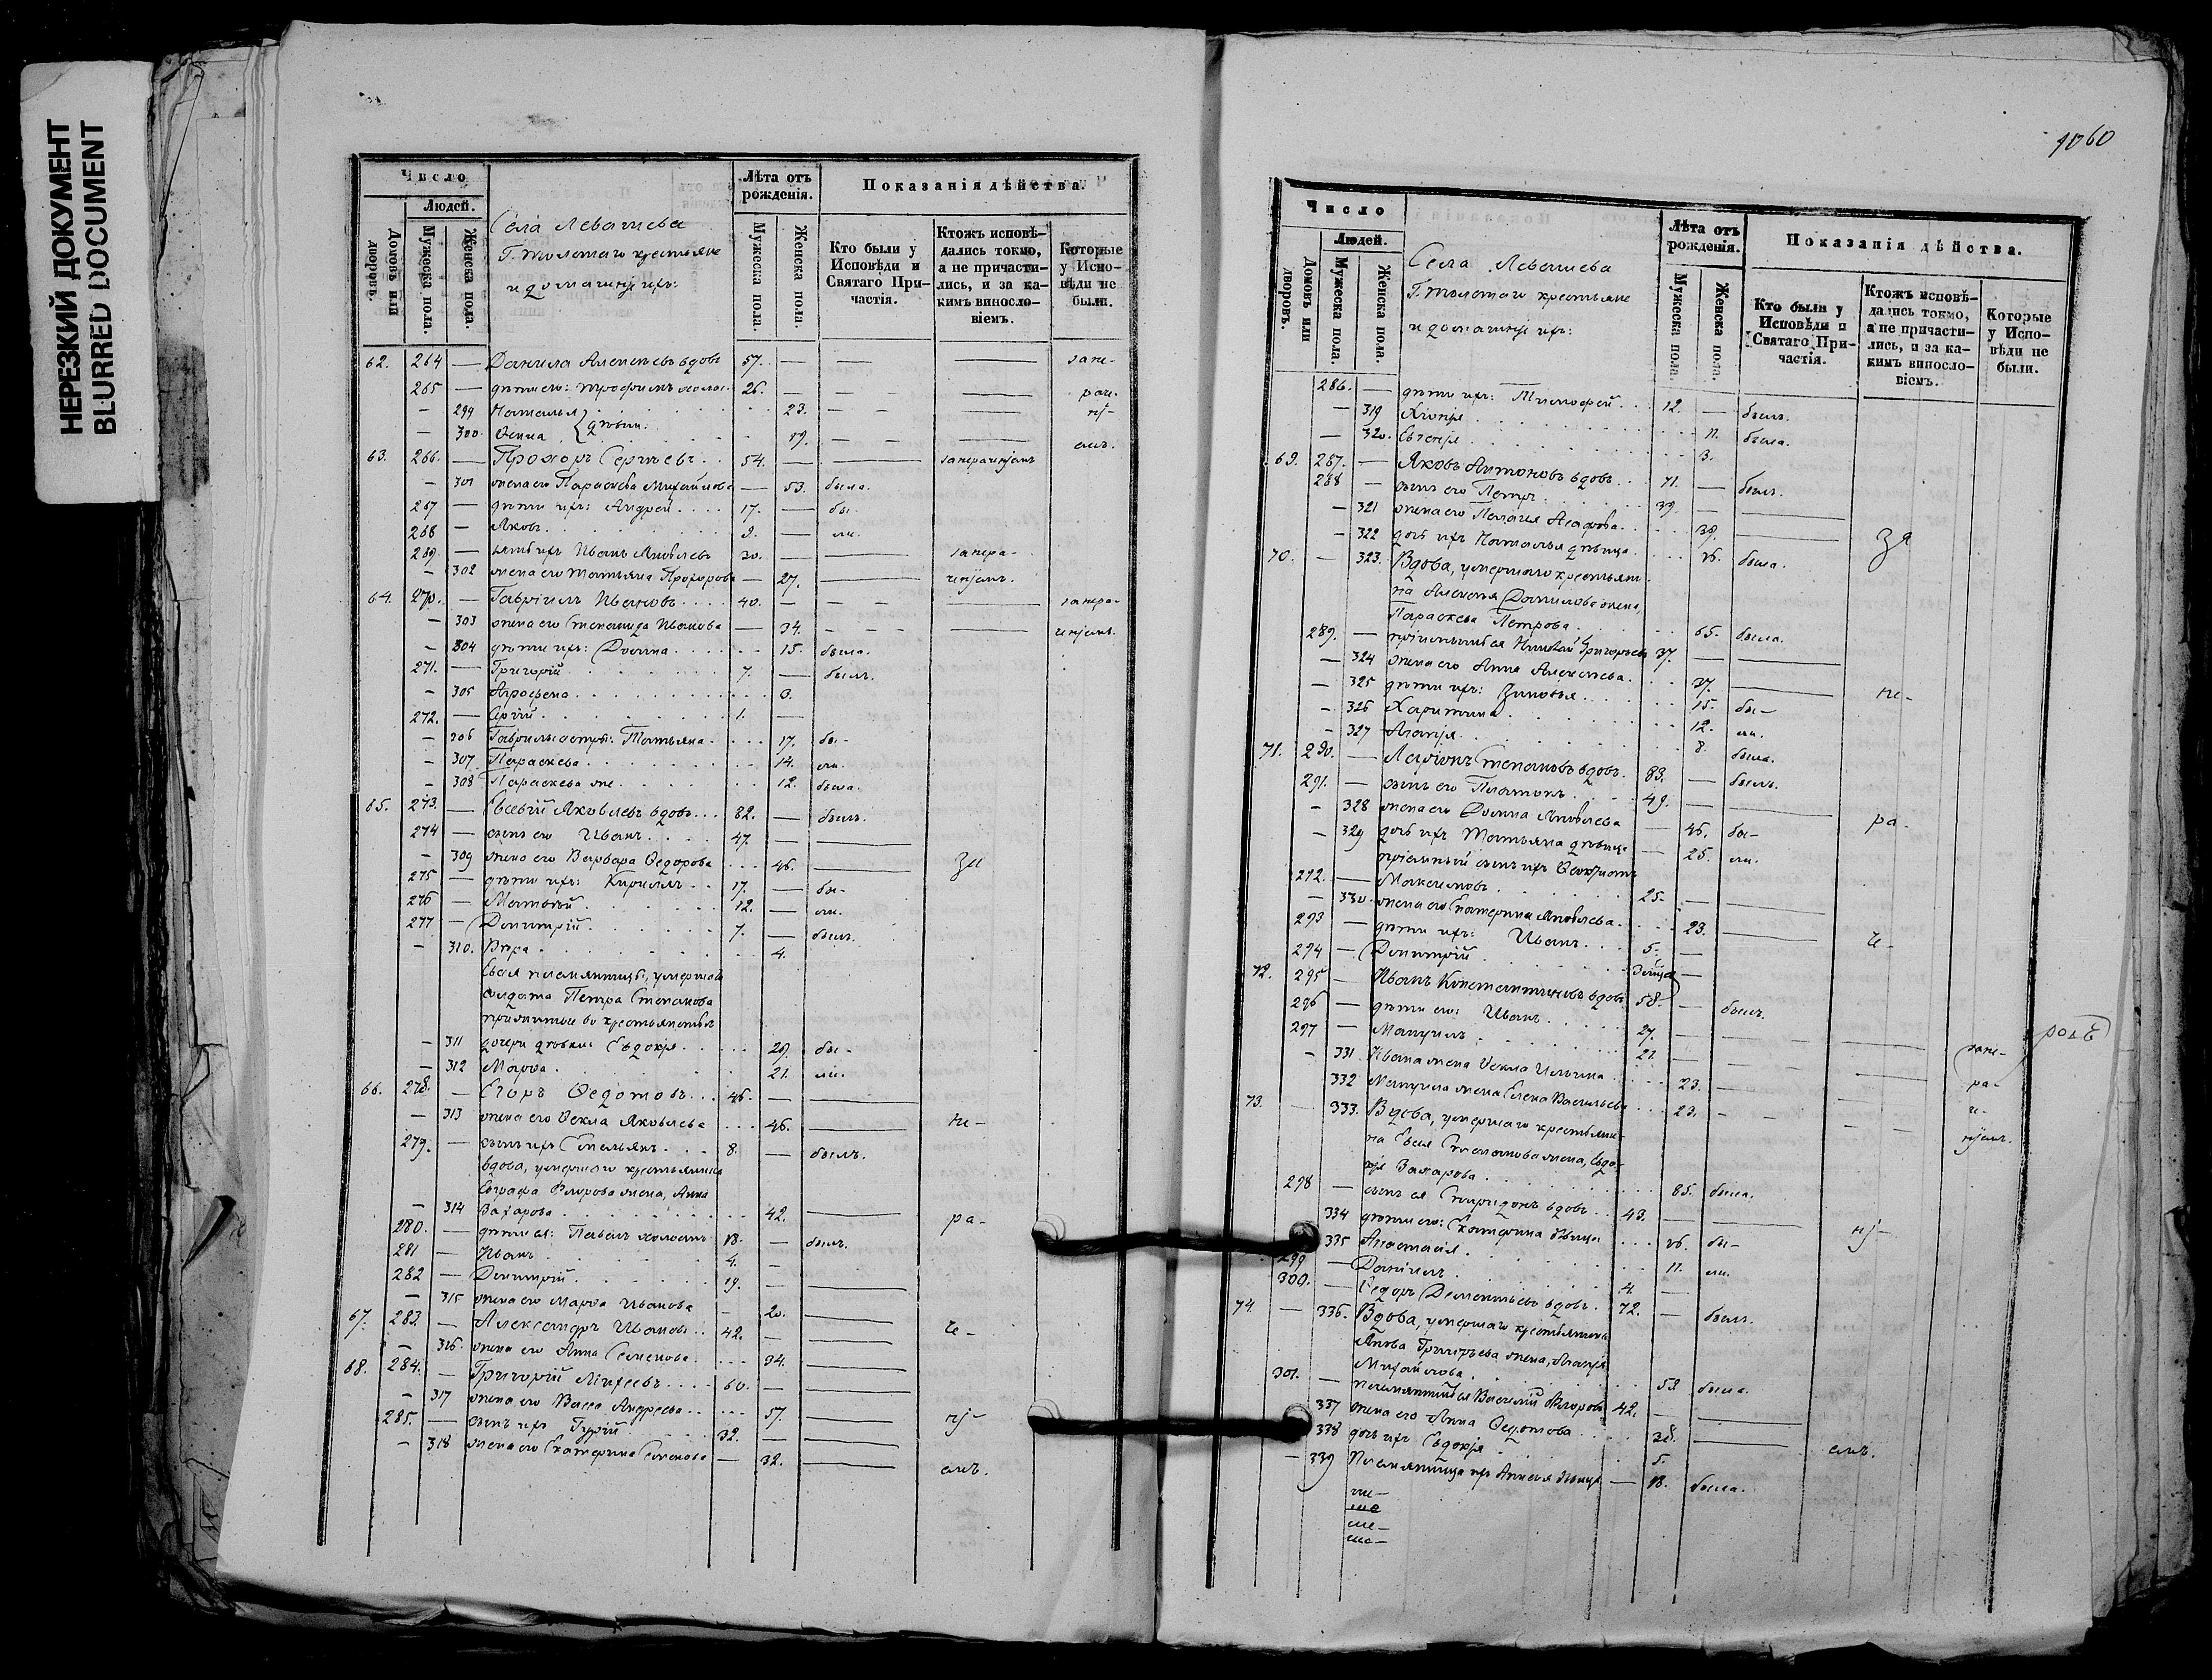 НЕРЕЗКИЙ ДОКУМЕНТ
BLURRED DOCUMENT
Число
Людей.
Домовъ или дворовъ.
Мужеска пола.
Женска пола.
Села Левашева
Г. Толстаго крестьяне
и домашніе ихъ:
Лѣта отъ рожденія.
Мужеска пола.
Женска пола.
Показанія дѣйства.
Кто были у Исповѣди и Святаго Причастія.
Ктожъ исповѣдались токмо, а не причастились, и за какимъ винословіемъ.
Которые у Исповѣди не были.
62. 264 — Данила Алексѣевъ вдовъ 57. —
265 — дѣти его: Трофимъ холос. 26. —
— 299 Наталья 23. —
— 300. Ѳекла } дѣвки. 19. —
63. 266. — Прохоръ Сергѣевъ 54. —
— 301 жена его Параскева Михайлова — 53. была.
267 — дѣти ихъ: Андрей 17. — бы-
268 — Яковъ 9. — ли.
269. — зять ихъ Иванъ Яковлевъ 30. —
— 302 жена его Татьяна Прохорова — 27.
64. 270. — Гавріилъ Ивановъ 40. —
— 303 жена его Степанида Иванова — 34.
— 304 дѣти ихъ: Домна 15. была.
271. — Григорій 7. — былъ.
— 305 Агрофена 3.
272. — Сергій 1. —
— 306 Гавриловы сестры: Татьяна 17. бы-
— 307 Параскева 14. ли.
— 308 Параскева же 12. была.
65. 273. — Евсевій Яковлевъ вдовъ 82. — былъ.
274 — сынъ его Иванъ 47. —
— 309 жена его Варвара Ѳедорова 46.
275 — дѣти ихъ: Кириллъ 17. — бы-
276 — Матвѣй 12. — ли.
277 — Димитрій 7. — былъ.
— 310. Вѣра 4.
Евсея племянницы, умершаго
солдата Петра Степанова
принятые въ крестьянство
— 311 дочери дѣвки: Евдокія 29. бы-
— 312 Марѳа 21. ли.
66. 278. — Егоръ Ѳедотовъ 46. —
— 313 жена его Ѳекла Яковлева 46. не-
279. — сынъ ихъ Емельянъ 8. — былъ.
вдова, умершаго крестьянина
Евграфа Флорова жена, Анна
— 314 Захарова 42. ра-
280. — дѣти ея: Павелъ холостъ 18. — былъ.
281 — Иванъ 4. —
282 — Димитрій 19. —
— 315 жена его Марѳа Иванова — 20.
67. 283. — Александръ Ивановъ 42. — че-
— 316. жена его Анна Семенова 34.
68. 284. — Григорій Михѣевъ 60. —
— 317 жена его Васса Андреева 57. ні-
285. — сынъ ихъ Гурій 32. —
— 318 жена его Екатерина Семенова — 32. емъ.
60
Число
Людей.
Домовъ или дворовъ.
Мужеска пола.
Женска пола.
Села Левашева
Г. Толстаго крестьяне
и домашніе ихъ:
Лѣта отъ рожденія.
Мужеска пола.
Женска пола.
Показанія дѣйства.
Кто были у Исповѣди и Святаго Причастія.
Ктожъ исповѣдались токмо, а не причастились, и за какимъ винословіемъ.
Которые у Исповѣди не были.
286. — дѣти ихъ: Тимофей 12. — былъ.
— 319 Хіонія 11. была.
— 320. Евгенія 3.
69. 287. — Яковъ Антоновъ вдовъ 71. — былъ.
288 — сынъ его Петръ 39. —
— 321 жена его Пелагея Агафова 39. За
— 322 дочь ихъ Наталья дѣвица 16. была.
70. — 323. Вдова, умершаго крестьяни-
на Алексея Данилова жена,
Параскева Петрова 65. была.
289. — пріемышъ ея Николай Григорьевъ 37. —
— 324 жена его Анна Алексѣева 37. не-
— 325 дѣти ихъ: Зиновья 15. бы-
— 326 Харитина 12. ли.
— 327 Агапія 8. была.
71. 290. — Ларіонъ Степановъ вдовъ 83. — былъ.
291. — сынъ его Платонъ 49. —
— 328 жена его Домна Яковлева — 46. бы- ра-
— 329 дочь ихъ Татьяна дѣвица — 25. ли.
пріемный сынъ ихъ
292. — Максимовъ 25. —
— 330. жена его Екатерина Яковлева 23. че-
293 — дѣти ихъ: Иванъ 5. —
294 — Димитрій —
72. 295 — Иванъ Константиновъ вдовъ 58. — былъ.
296 — дѣти его: Иванъ 27. —
297 — Мануилъ 21. —
— 331. Ивана жена Ѳекла Ильина 23.
332 Мануила жена Елена Васильева 23.
73. — 333. Вдова, умершаго крестьяни-
на Евсея Степанова жена, Евдо-
кія Захарова 85. была.
298 — сынъ ея Спиридонъ вдовъ 43. — ні-
334 дѣти его: Екатерина дѣвица 16. бы-
335 Анастасія 11. ли.
299 — Даніилъ 4. —
300. — Ѳедоръ Дементьевъ вдовъ 72. — былъ.
74. — 336. Вдова, умершаго крестьянина
Якова Григорьева жена, Агапія
Михайлова 53 была.
301. — племянникъ ея Василій Флоровъ 42. —
337 жена его Анна Ѳедотова 38. емъ.
338 дочь ихъ Евдокія 5.
— 339 Племянница ихъ Анисья дѣвица — 18. была.